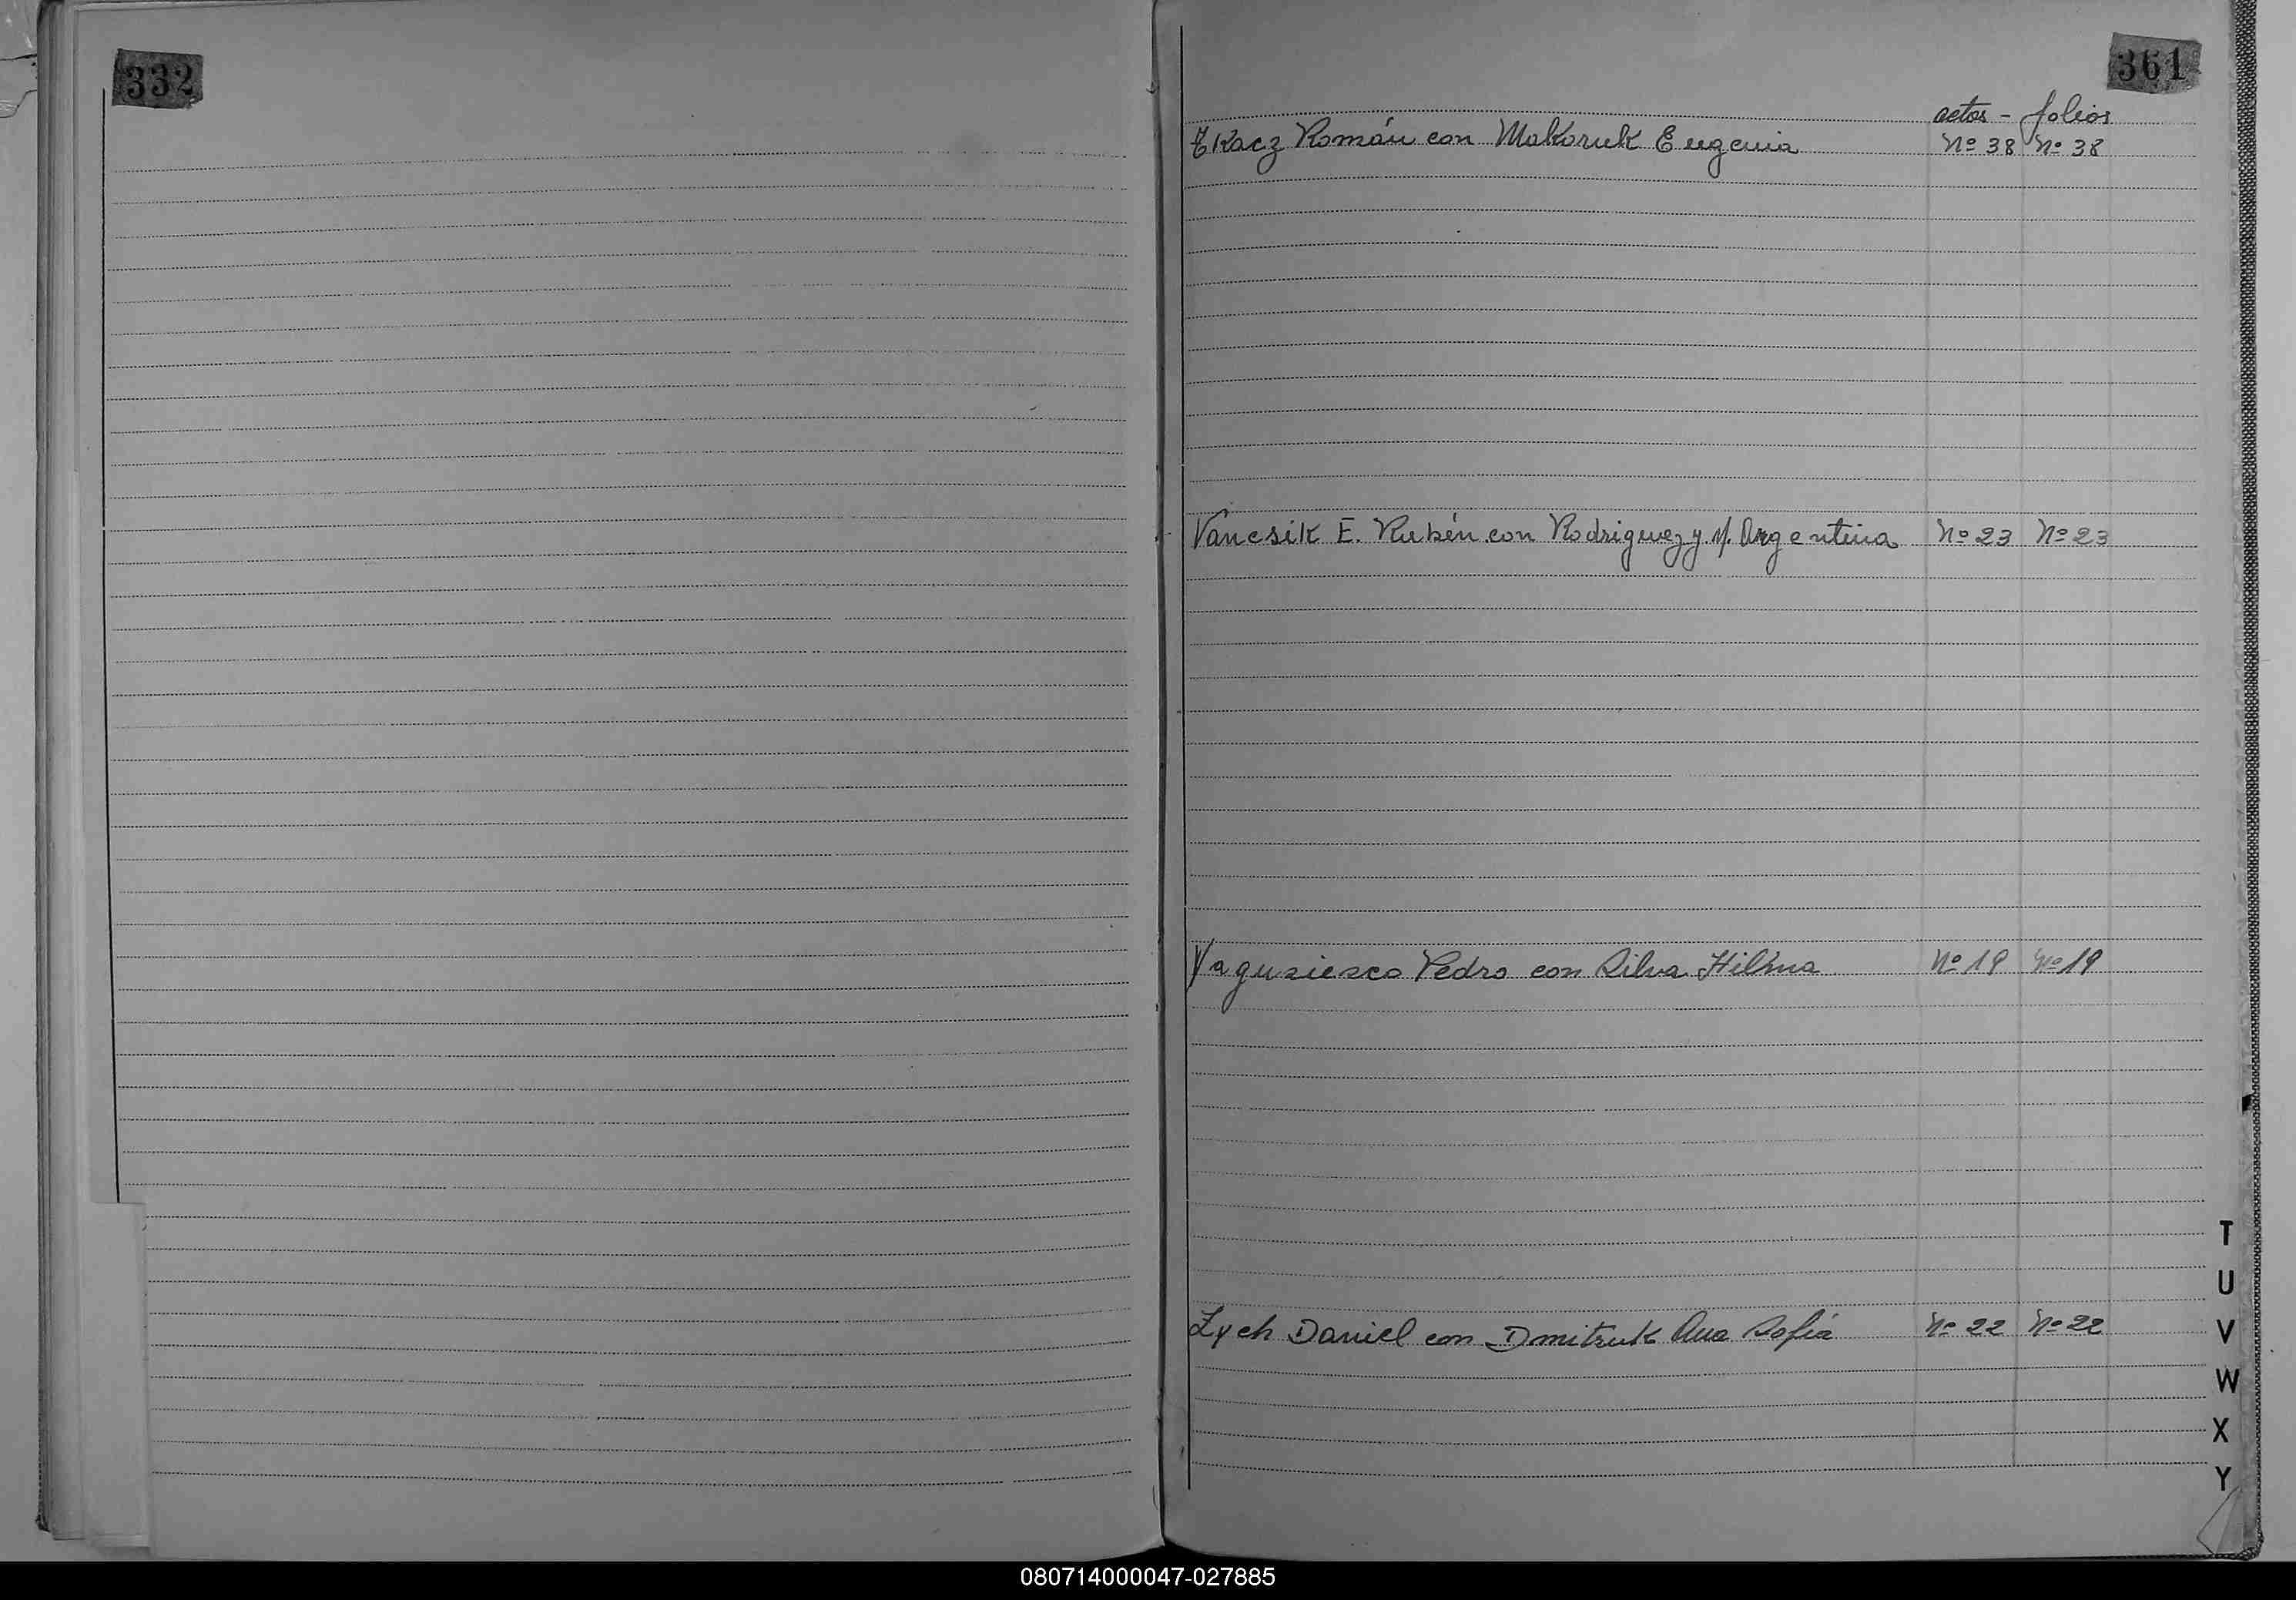 332
361
actas - folios
Tkacz Román con Makaruk Eugenia Nº 38 Nº 38
Vancsik E. Rubén con Rodriguez y M. Argentina Nº 23 Nº 23
Pedro con Silva Hilma Nº 19 Nº 19
Zych Daniel con Dmitruk Ana Sofia Nº 22 Nº 22
T
U
V
W
X
Y
080714000047-027885